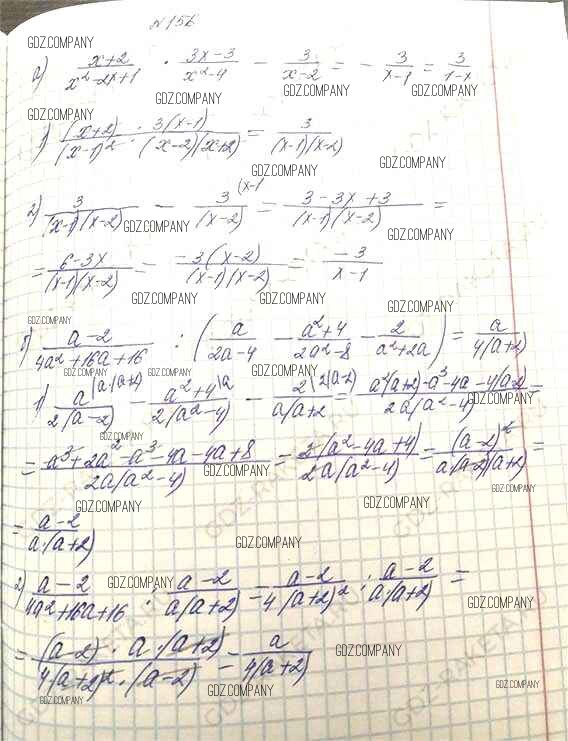 N 156
GDZ.COMPANY
а) (x+2)/(x²-2x+1) · (3x-3)/(x²-4) - 3/(x-2) = - 3/(x-1) = 3/(1-x)
GDZ.COMPANY GDZ.COMPANY GDZ.COMPANY
GDZ.COMPANY
1) (x+2)/(x-1)² · 3(x-1)/((x-2)(x+2)) = 3/((x-1)(x-2))
GDZ.COMPANY GDZ.COMPANY
2) 3/((x-1)(x-2)) - 3/(x-2) (x-1 = (3-3x+3)/((x-1)(x-2)) =
GDZ.COMPANY GDZ.COMPANY
= (6-3x)/((x-1)(x-2)) = -3(x-2)/((x-1)(x-2)) = -3/(x-1)
GDZ.COMPANY GDZ.COMPANY GDZ.COMPANY
GDZ.COMPANY
(a-2)/(4a²+16a+16) : (a/(2a-4) - (a²+4)/(2a²-8) - 2/(a²+2a)) = a/(4(a+2))
GDZ.COMPANY GDZ.COMPANY GDZ.COMPANY
1) a(a·(a+2)/(2(a-2)) - (a²+4(a)/(2(a²-4)) - 2(2(a-2)/(a(a+2)) = (a²(a+2)-a³-4a-4(a-2)/(2a(a²-4)) =
GDZ.COMPANY GDZ.COMPANY
= (a³+2a²-a³-4a-4a+8)/(2a(a²-4)) = 2(a²-4a+4)/(2a(a²-4)) = (a-2)²/(a(a-2)(a+2)) =
GDZ.COMPANY GDZ.COMPANY
GDZ.COMPANY GDZ.COMPANY
= (a-2)/(a·(a+2))
GDZ.COMPANY
2) (a-2)/(4a²+16a+16) : (a-2)/(a(a+2)) = (a-2)/(4(a+2)²) : (a-2)/(a·(a+2)) =
GDZ.COMPANY GDZ.COMPANY
= ((a-2)·a·(a+2))/(4(a+2)²·(a-2)) = a/(4(a+2))
GDZ.COMPANY
GDZ.COMPANY GDZ.COMPANY GDZ.COMPANY